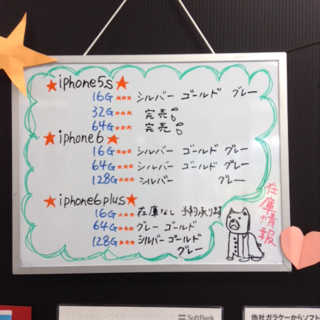 ★iphone5s★
16G★★★ シルバー ゴールド グレー
32G★★★ 完売
64G★★★ 完売
★iphone6★
16G★★★ シルバー ゴールド グレー
64G★★★ シルバー ゴールド グレー
128G★★★ シルバー グレー
★iphone6plus★
16G★★★ 在庫なし 予約承り中
64G★★★ グレー ゴールド
128G★★★ シルバー ゴールド
グレー
在庫情報
SoftBank
他社ガラケーからソフト